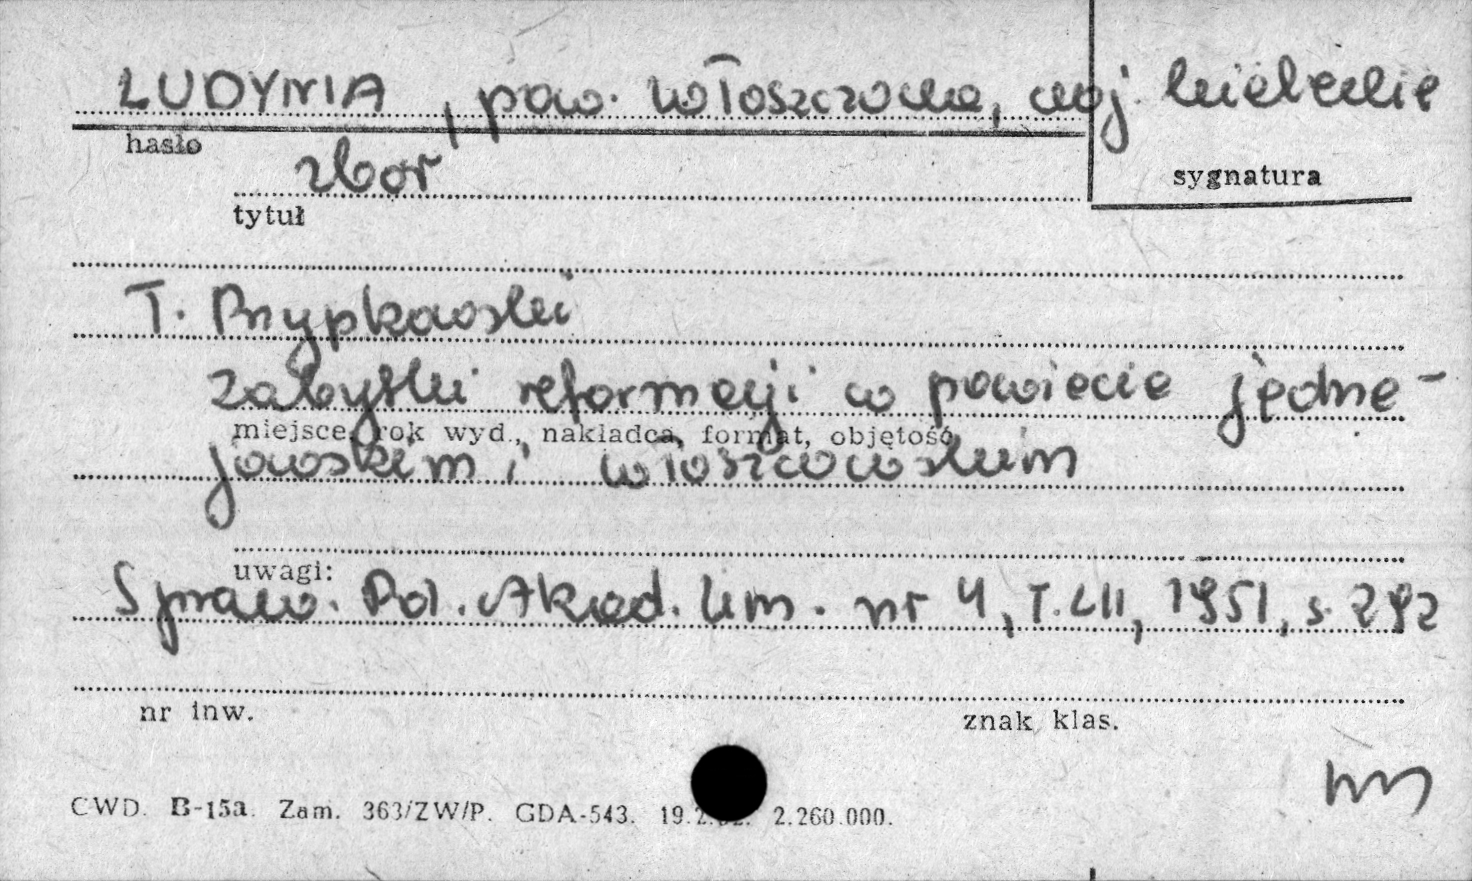 LUDYNIA, pow. Włoszczowa, woj. kieleckie
hasło
sygnatura
zbór
tytuł
T. Przypkowski
Zabytki reformacji w powiecie jędrze-
miejsce, rok wyd., nakładca, format, objętość
jowskim i włoszczowskim
uwagi:
Spraw. Pol. Akad. Um. nr 4, T. LII, 1951, s. 292
nr inw.
znak klas.
CWD. B-15a. Zam. 363/ZW/P. GDA-543. 19.2. 2.260.000.